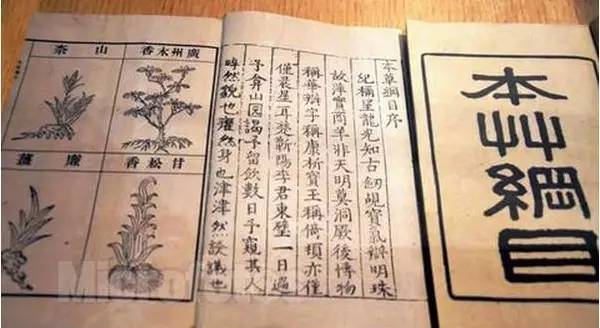 本艸綱目
本草綱目序
紀稱望龍光知古劒覘寶氣辯明珠
故萍實商羊非天明莫洞厥後博物
稱華辯字稱康析寶王稱倚頓亦僅
僅晨星耳楚蘄陽李君東璧一日過
予弇山园謁予留飲數日予窺其人
睟然貌也癯然身也津津然談議也
廣州木香
山柰
甘松香
廉薑